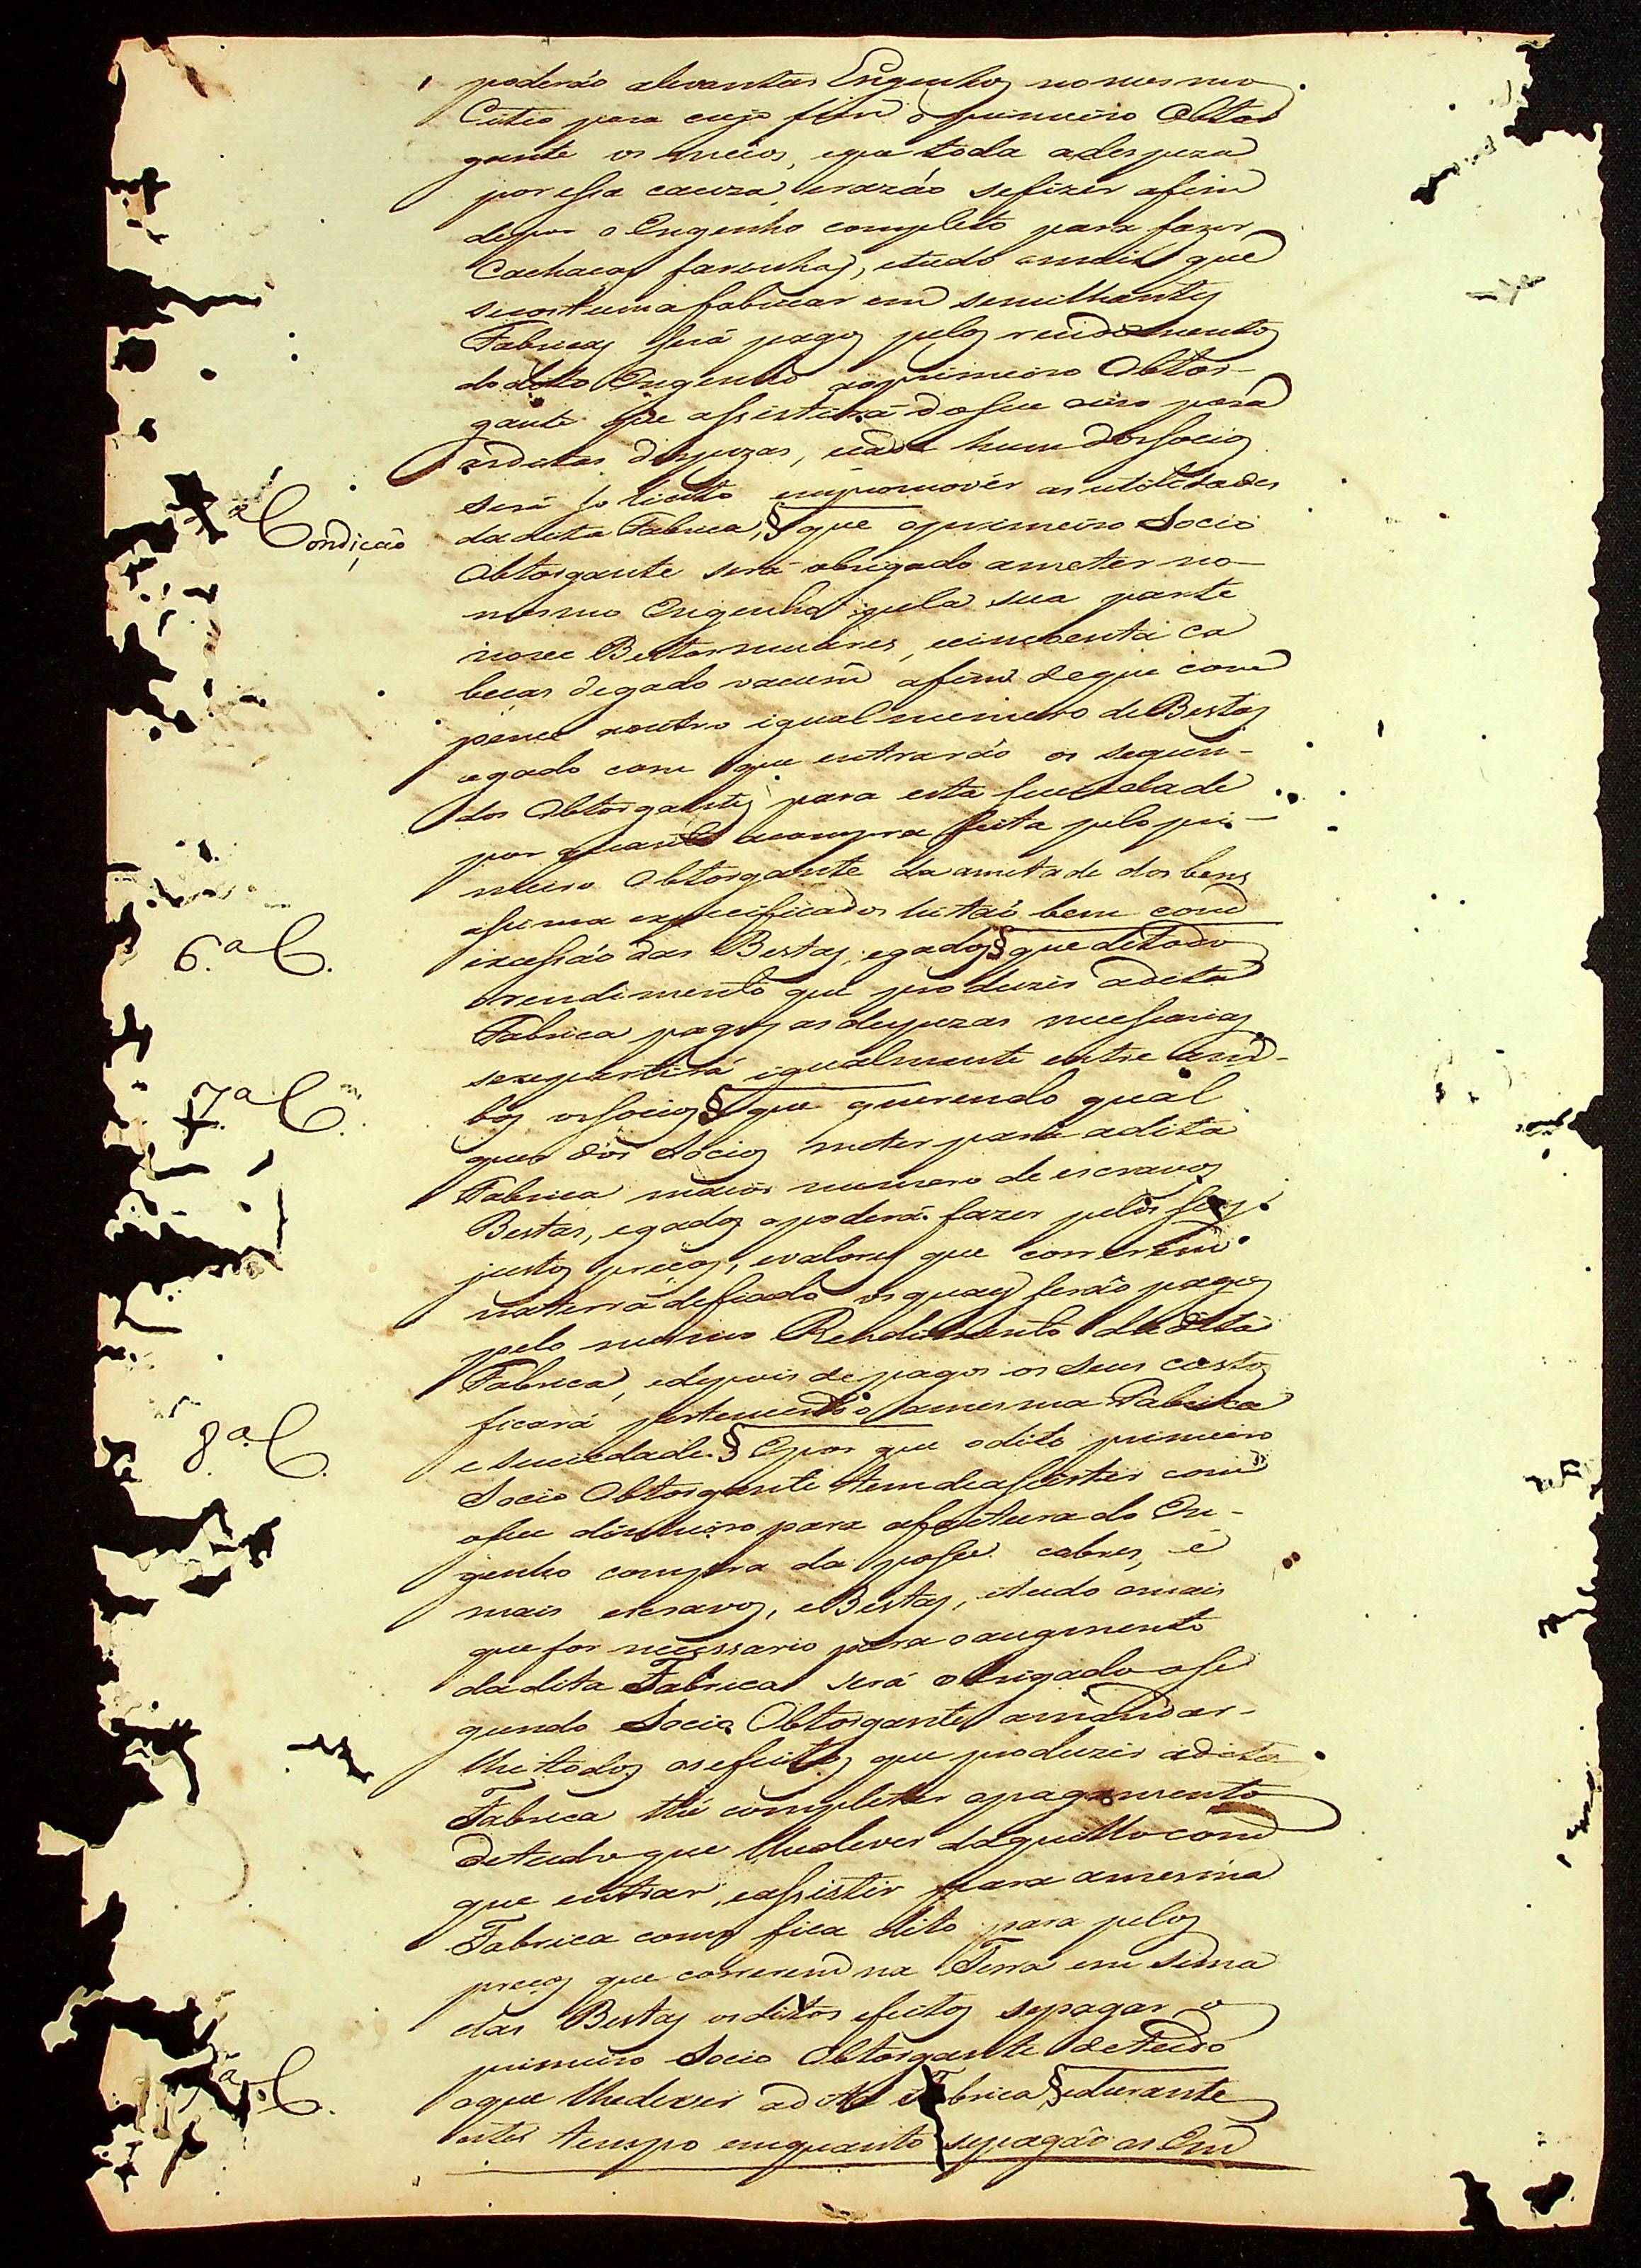 poderáõ alevantar Engenho no mesmo
Citio para cujo fim o primeiro Obtor
gante os meios, e que toda a despeza
por essa cauza, e razáõ se fizer afim
de por o Engenho completo para fazer
Cachaças farinhas, e tudo o mais que
se costuma fabricar em semilhantes
Fabricas será pago pelos rendimentos
do dito Engenho ao primeiro Obtor-
gante que assistirá do seu para
as ditas despezas, e cada hum dos socios
será solicito em promover as utilidades
Condição
da dita Fabrica, § que o primeiro Socio
Obtorgante será obrigado a meter no
mesmo Engenho pela sua parte
nove Bestas muares, e cincoenta ca
beças de gado vacum afim de que com
pence a outro igual numero de Bestas
e gado com que entraráõ os segun-
dos Obtorgantes para esta sociedade
por quanto a compra feita pelo pri-
meiro Obtorgante da ametade dos bens
assima expecificados hé taõ bem com
6.ª C.
excessáõ das Bestas, e gados § que de todo
o rendimento que produzir a dita
Fabrica pagos as despezas necessarias
se repartirá igualmente entre am-
7.ª C.
bos os socios § que querendo qual
quer dos Socios meter para a dita
Fabrica maior numero de escravos
Bestas, e gados o poderá fazer pelos seos
justos preços, e valores que correrem
na terra de fiado os quaes seráõ pagos
pelo mesmo Rendimento da dita
Fabrica, e depois de pagos os seus custos
ficará pertencendo a mesma Fabrica
8.ª C.
e sociedade. § E por que o dito primeiro
Socio Obtorgante tem de assistir com
o seu dinheiro para a factura do En-
genho compra da posse cobres, e
mais escravos, e Bestas, e tudo o mais
que for necessario para o augmento
da dita Fabrica será obrigado o se
gundo Socio Obtorgante a mandar-
lhe todos os efeitos que produzir a dita
Fabrica thé completar o pagamento
de tudo que lhe dever daquillo com
que entrar, e assistir para a mesma
Fabrica como fica dito para pelos
preços que correrem na Terra em sima
das Bestas os ditos efeitos se pagar o
primeiro Socio Obtorgante de tudo
ª C.
o que lhe dever a dita Fabrica § e durante
este tempo emquanto se pagáõ as Em